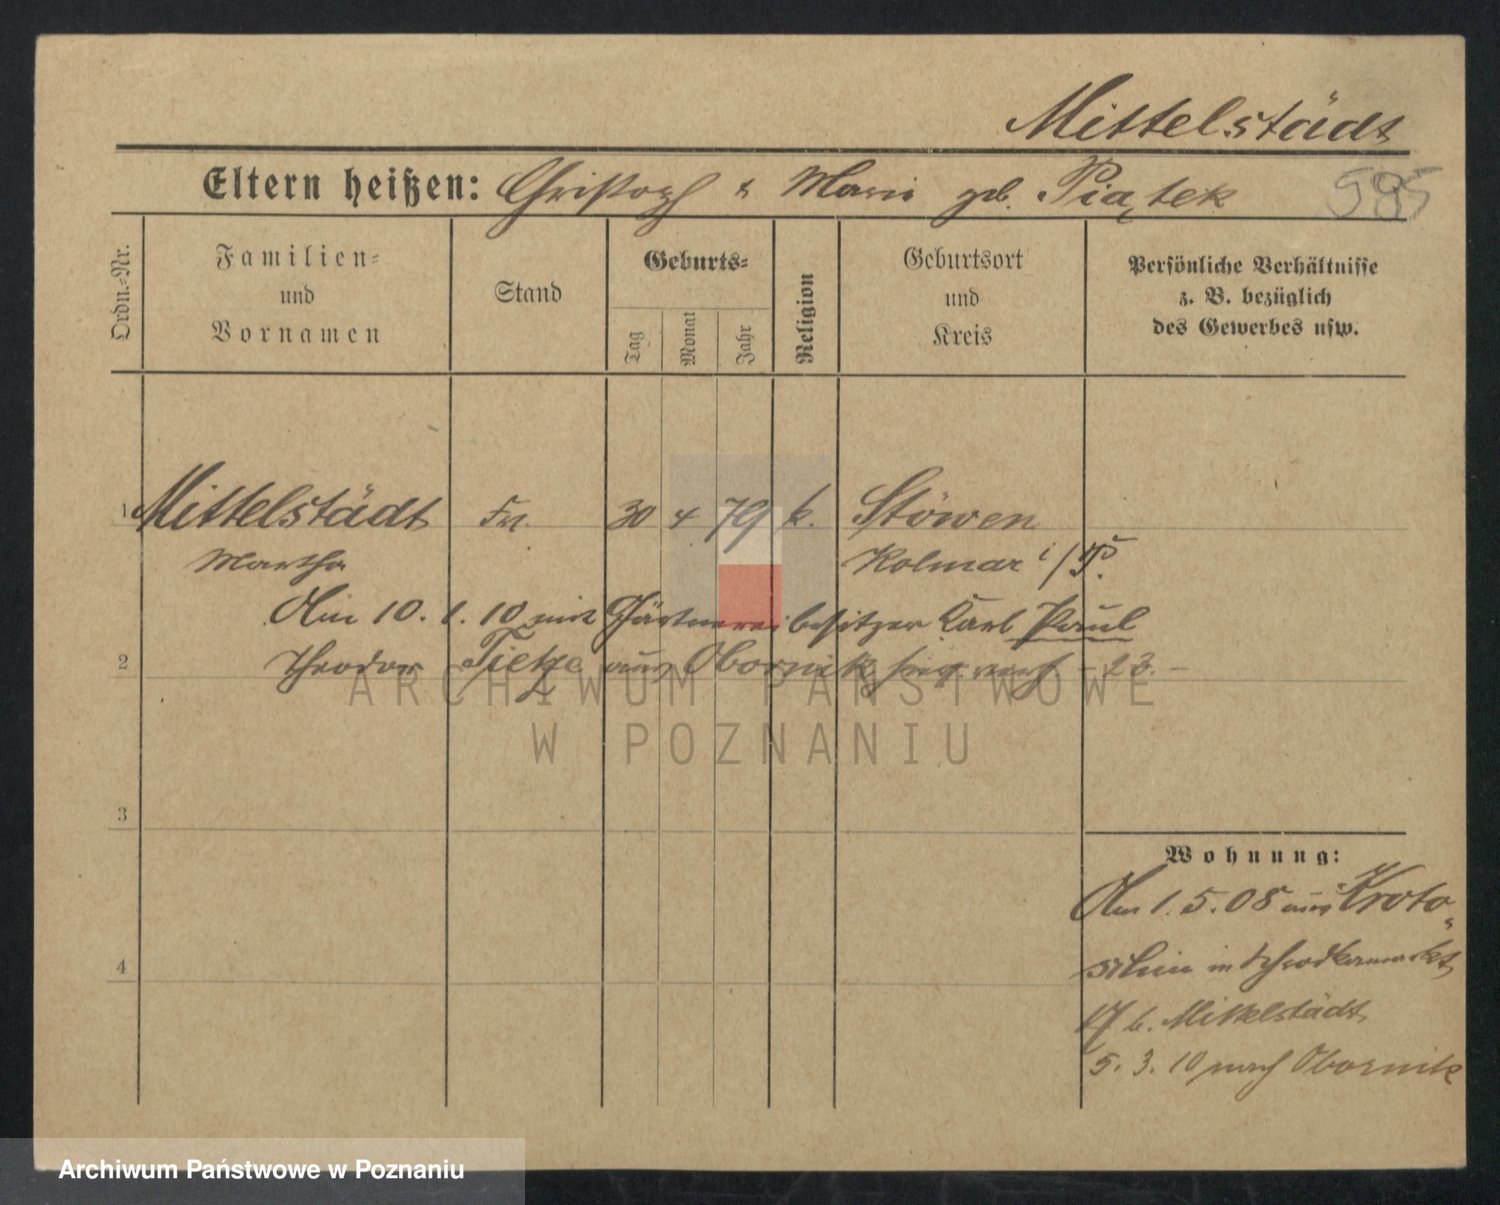 Mittelstädt
Eltern heißen: Christoph & Marie geb. Piątek
595
Ordn.-Nr.
Familien-
und
Vornamen
Stand
Geburts-
Tag
Monat
Jahr
Religion
Geburtsort
und
Kreis
Persönliche Verhältnisse
z. B. bezüglich
des Gewerbes usw.
1 Mittelstädt Frl. 30 4 79 k. Stöwen
Martha Kolmar i/P.
Am 10. 1. 10 mit Gärtnereibesitzer Karl Paul
2 Theodor Tietze aus Obornik -23.-
3
4
Wohnung:
Am 1. 5. 08 aus Kroto-
schin in
17 b. Mittelstädt
5. 3. 10 nach Obornik
ARCHIWUM PAŃSTWOWE
W POZNANIU
Archiwum Państwowe w Poznaniu